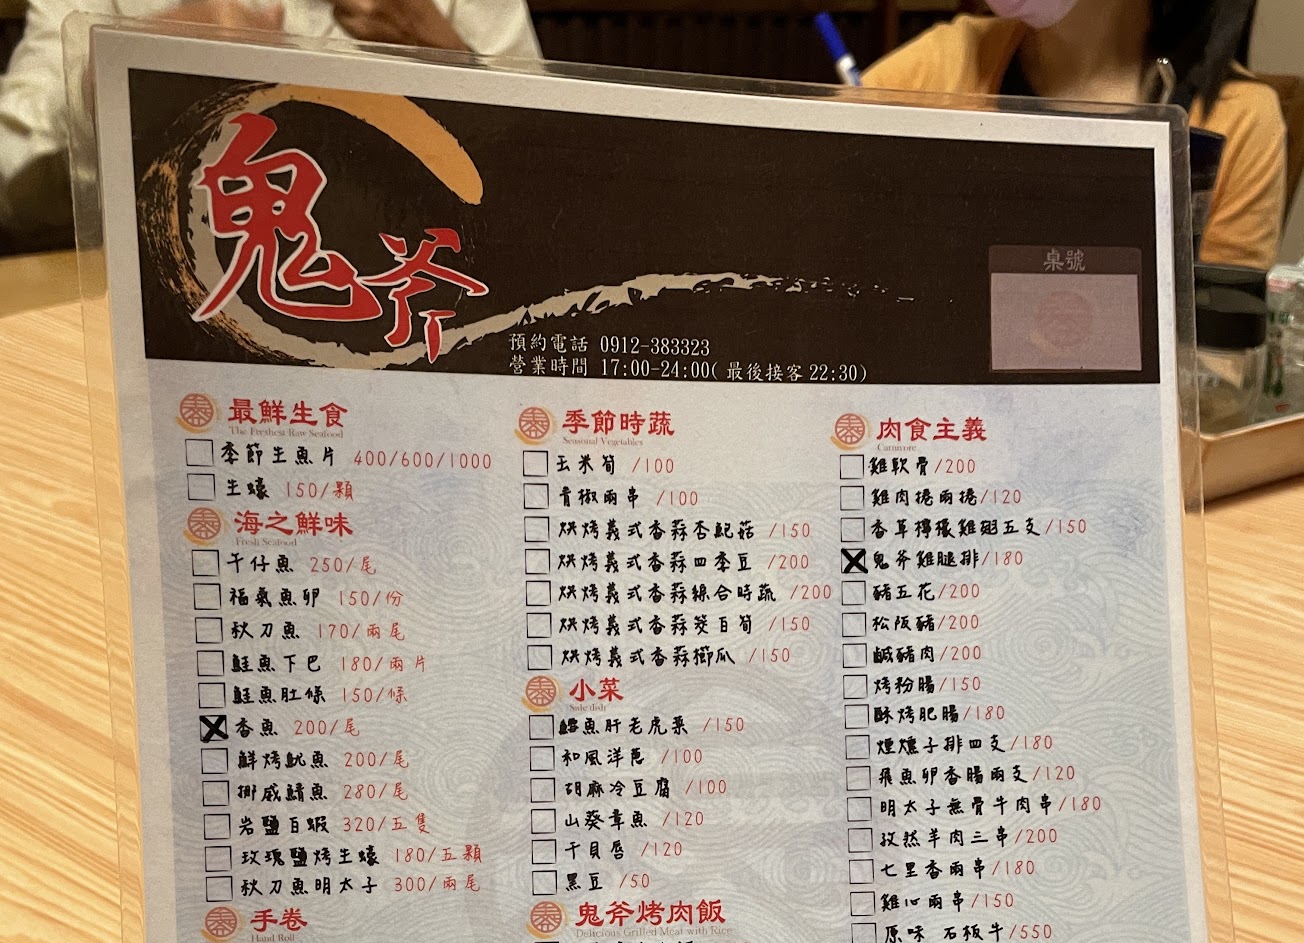 鬼斧
桌號
預約電話 0912-383323
營業時間 17:00-24:00( 最後接客 22:30)
最鮮生食
The Freshest Raw Seafood
季節生魚片 400/600/1000
生蠔 150/顆
海之鮮味
Fresh Seafood
午仔魚 250/尾
福氣魚卵 150/份
秋刀魚 170/兩尾
鮭魚下巴 180/兩片
鮭魚肚條 150/條
香魚 200/尾
鮮烤魷魚 200/尾
挪威鯖魚 280/尾
岩鹽白蝦 320/五隻
玫瑰鹽烤生蠔 180/五顆
秋刀魚明太子 300/兩尾
手卷
Hand Roll
季節時蔬
Seasonal Vegetables
玉米筍 /100
青椒兩串 /100
烘烤義式香蒜杏鮑菇 /150
烘烤義式香蒜四季豆 /200
烘烤義式香蒜綜合時蔬 /200
烘烤義式香蒜筊白筍 /150
烘烤義式香蒜櫛瓜 /150
小菜
Side dish
鱈魚肝老虎菜 /150
和風洋蔥 /100
胡麻冷豆腐 /100
山葵章魚 /120
干貝唇 /120
黑豆 /50
鬼斧烤肉飯
Delicious Grilled Meat with Rice
肉食主義
Carnivore
雞軟骨/200
雞肉捲兩捲/120
香草檸檬雞翅五支/150
鬼斧雞腿排/180
豬五花/200
松阪豬/200
鹹豬肉/200
烤粉腸/150
酥烤肥腸/180
煙燻子排四支/180
飛魚卵香腸兩支/120
明太子無骨牛肉串/180
孜然羊肉三串/200
七里香兩串/180
雞心兩串/150
原味 石板牛/550